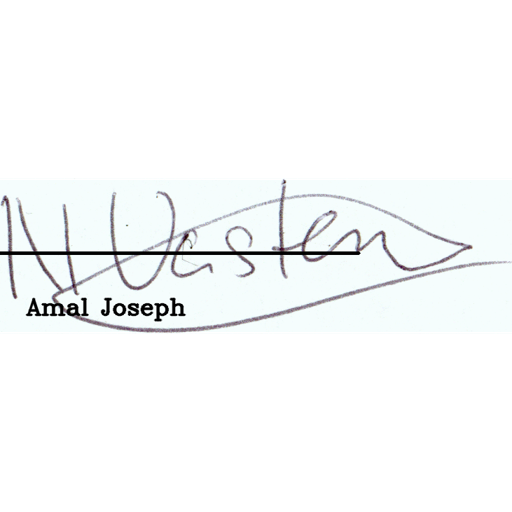 N Vasten
Amal Joseph